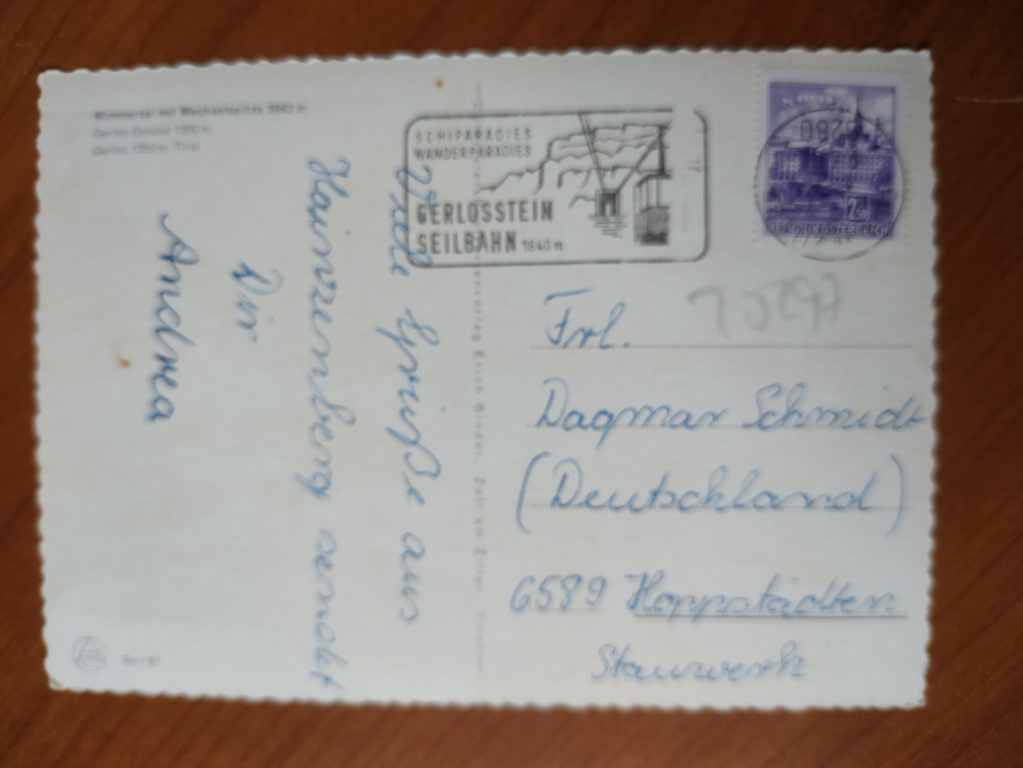 Wimmertal mit Wechselspitze
Gerlos Gmünd 1200 m
Gerlos 1250 m, Tirol
Viele Grüße aus
Hainzenberg sendet
Dir
Andrea
SCHIPARADIES
WANDERPARADIES
GERLOSSTEIN
SEILBAHN 1640 m
Erich Binder, Zell am Ziller, Tirol
REPUBLIK ÖSTERREICH
Frl.
Dagmar Schmidt
(Deutschland)
6589 Hoppstädten
Stauwerk